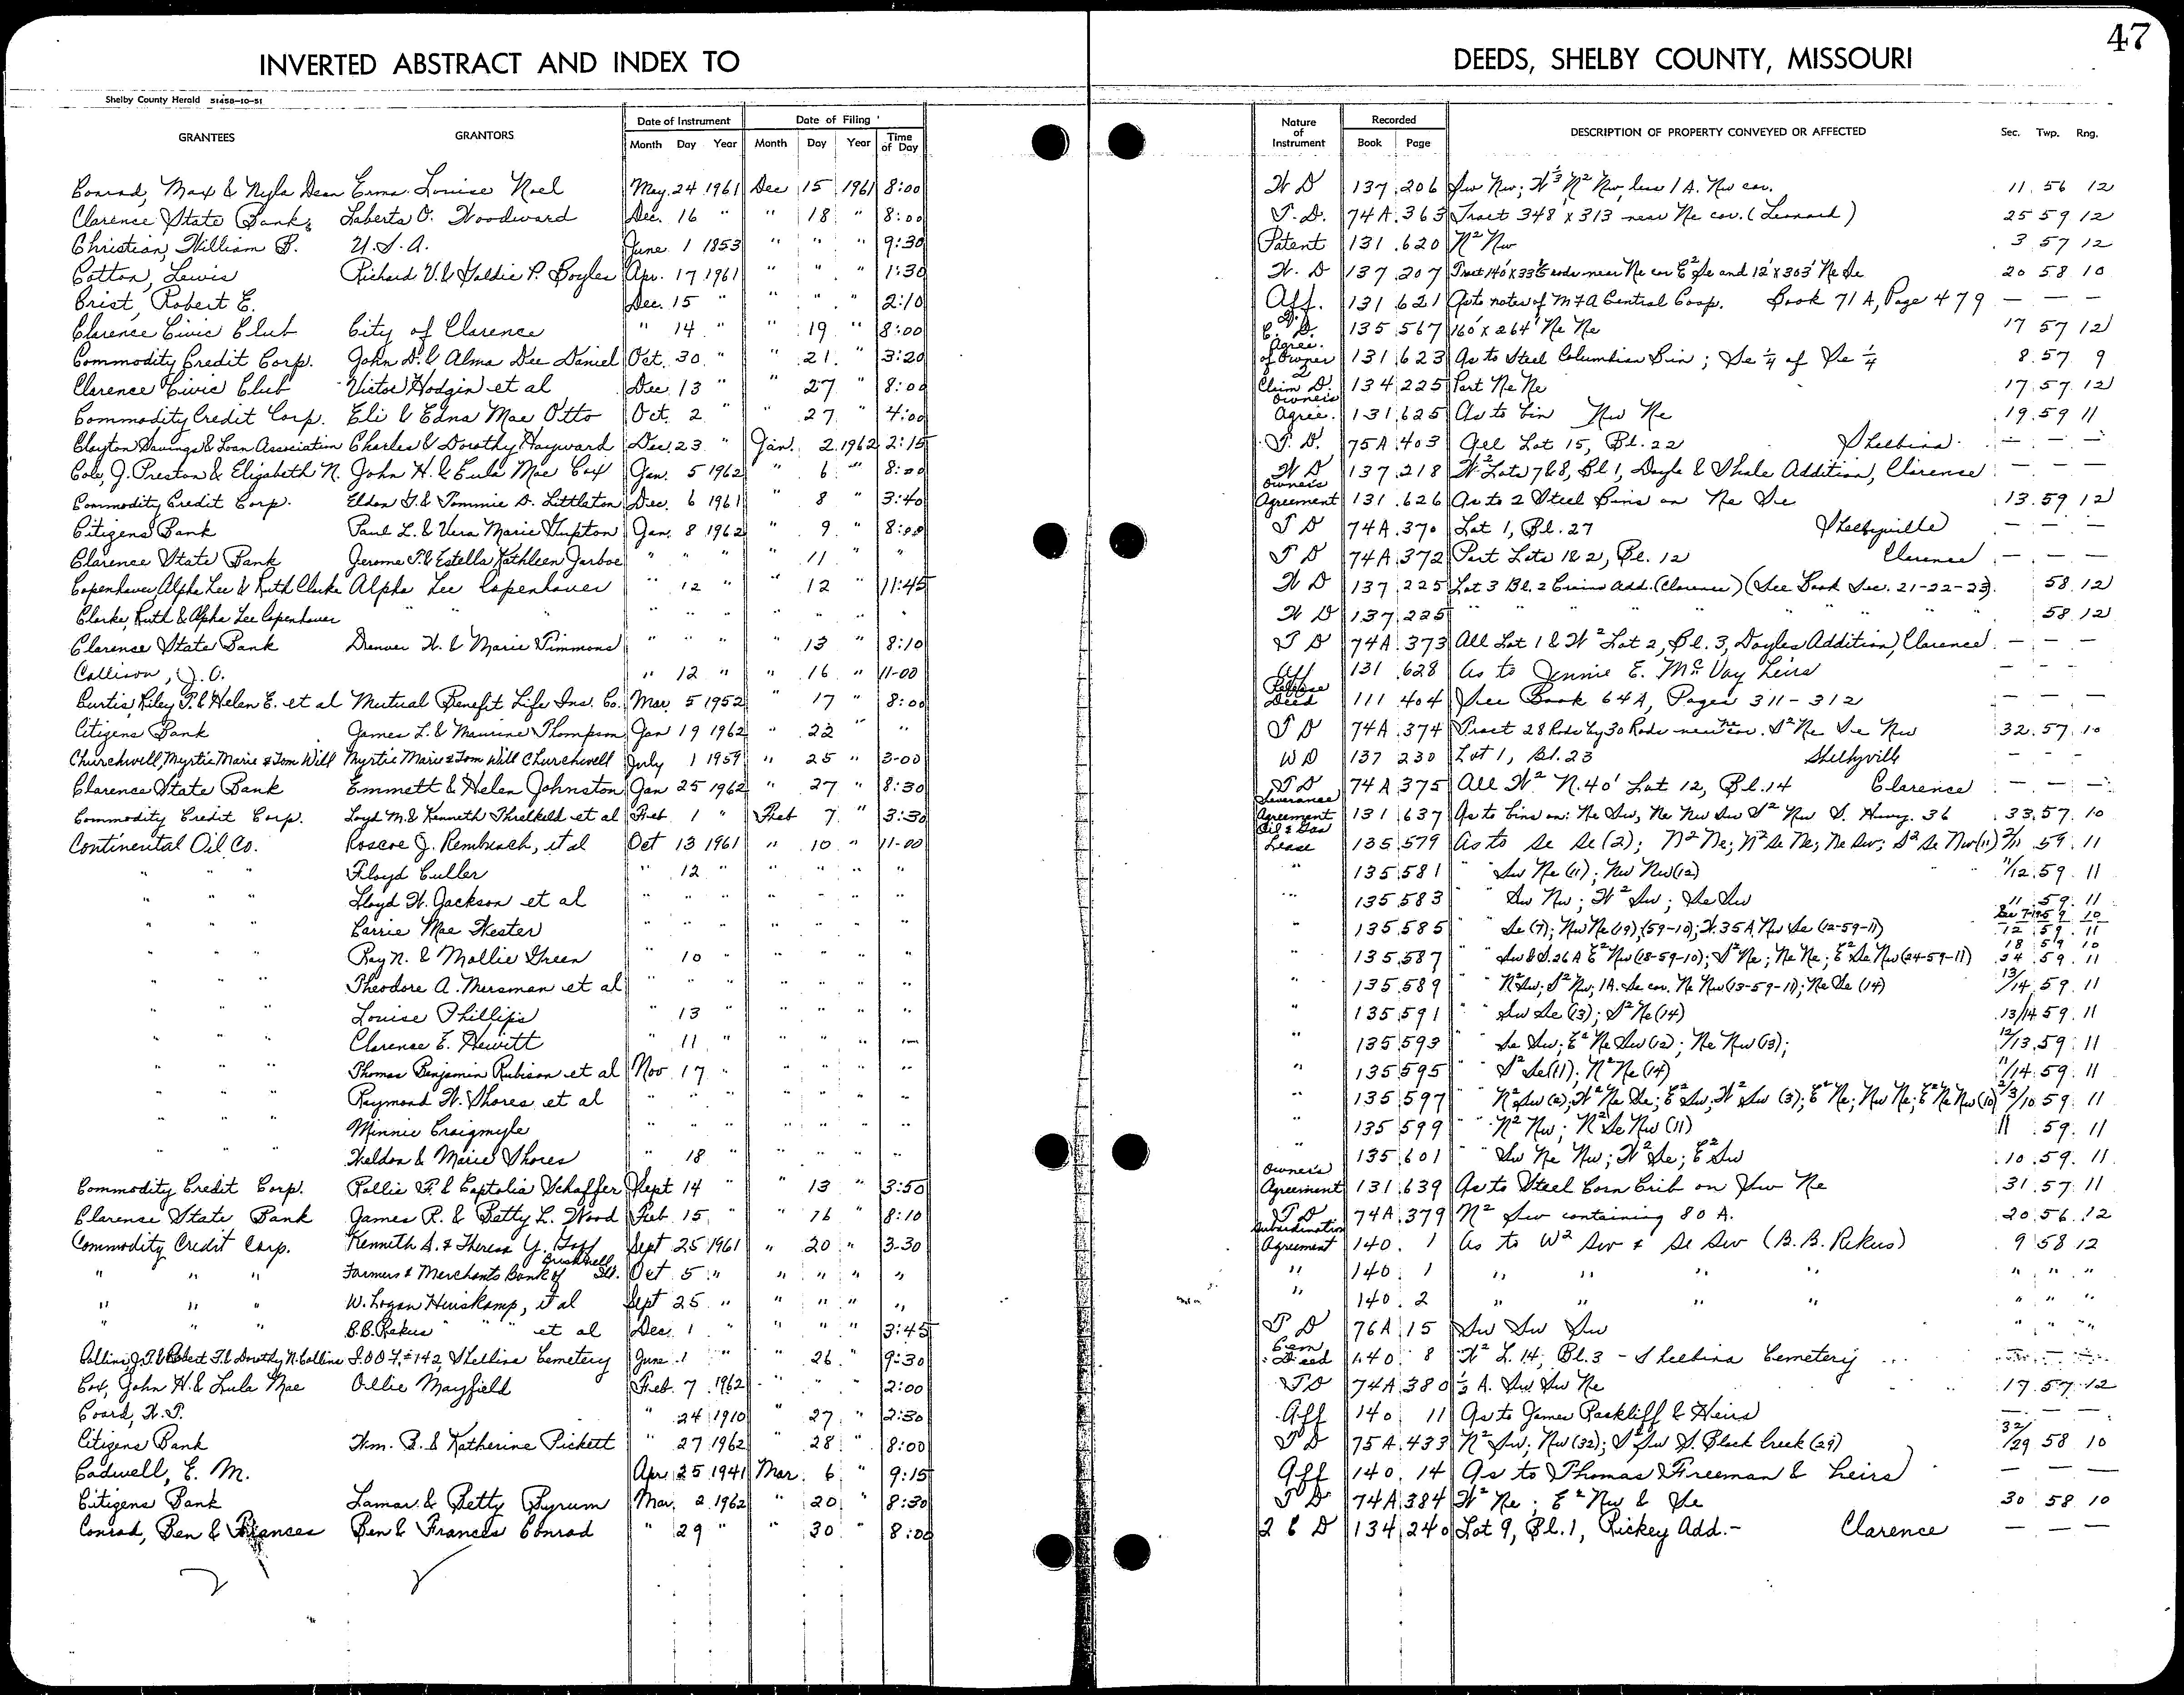 47
INVERTED ABSTRACT AND INDEX TO DEEDS, SHELBY COUNTY, MISSOURI
Shelby County Herald 51458-10-51
GRANTEES GRANTORS Date of Instrument Month Day Year Date of Filing Month Day Year Time of Day Nature of Instrument Recorded Book Page DESCRIPTION OF PROPERTY CONVEYED OR AFFECTED Sec. Twp. Rng.
Conrad, Max & Nyla Dean Erma Louise Noel May 24 1961 Dec 15 1961 8:00 W D 137 206 Sw Nw; W⅓ N² Nw, less 1 A. Nw cor. 11 56 12
Clarence State Bank Laberta O. Woodward Dec. 16 " " 18 " 8:00 T. D. 74A 363 Tract 348' x 313 near Ne cor. (Leonard) 25 59 12
Christian, William B. U.S.A. June 1 1853 " " " 9:30 Patent 131 620 N² Nw 3 57 12
Cotton, Lewis Richard V. & Goldie P. Boyles Apr. 17 1961 " " " 1:30 W. D 137 207 Tract 140' x 33⅓ rods near Ne cor E² Se and 12' x 303' Ne Se 20 58 10
Crist, Robert E. Dec. 15 " " " " 2:10 Aff. 131 621 As to notes of MFA Central Coop. Book 71A, Page 479 — — —
Clarence Civic Club City of Clarence " 14 " " 19 " 8:00 Q. C. D. 135 567 160' x 264' Ne Ne 17 57 12
Commodity Credit Corp. John D. & Alma Dee Daniel Oct. 30 " " 21 " 3:20 Agree. of Owner 131 623 As to Steel Columbian Bin; Se ¼ of Se ¼ 8 57 9
Clarence Civic Club Victor Hodgin et al Dec 13 " " 27 " 8:00 2 Claim D. 134 225 Part Ne Ne 17 57 12
Commodity Credit Corp. Eli & Edna Mae Otto Oct. 2 " " 27 " 4:00 Owner's Agree. 131 625 As to bin Nw Ne 19 59 11
Clayton Savings & Loan Association Charles & Dorothy Hayward Dec. 23 " Jan. 2 1962 2:15 T. D. 75A 403 All Lot 15, Bl. 22 Shelbina — — —
Cole, J. Preston & Elizabeth N. John H. & Eula Mae Cox Jan. 5 1962 " 6 " 8:00 W D 137 218 W² Lots 7 & 8, Bl 1, Doyle & Shale Addition, Clarence — — —
Commodity Credit Corp. Eldon G. & Tommie D. Littleton Dec. 6 1961 " 8 " 3:40 Owner's Agreement 131 626 As to 2 Steel Bins on Ne Se 13 59 12
Citizens Bank Paul L. & Vera Marie Gupton Jan. 8 1962 " 9 " 8:00 T D 74A 370 Lot 1, Bl. 27 Shelbyville — — —
Clarence State Bank Jerome T. & Estella Kathleen Jarboe " " " " 11 " " T D 74A 372 Part Lots 1 & 2, Bl. 12 Clarence — — —
Copenhaver, Alpha Lee & Ruth Clarke Alpha Lee Copenhaver " 12 " " 12 11:45 W D 137 225 Lot 3 Bl. 2 Crains Add. (Clarence) (See Book Sec. 21-22-23) 58 12
Clarke, Ruth & Alpha Lee Copenhaver " " " " " " " W D 137 225 " " " " " " 58 12
Clarence State Bank Denver W. & Marie Timmons " " " " 13 8:10 T D 74A 373 All Lot 1 & W² Lot 2, Bl. 3, Doyles Addition, Clarence — — —
Collison, J. O. " 12 " " 16 " 11-00 Aff 131 628 As to Jennie E. McVay Heirs — — —
Curtis, Riley P. & Helen E. et al Mutual Benefit Life Ins. Co. Mar. 5 1952 " 17 " 8:00 Release Deed 111 404 See Book 64A, Pages 311-312 — — —
Citizens Bank James L. & Maurine Thompson Jan 19 1962 " 22 " " T D 74A 374 Tract 28 Rods by 30 Rods near Ne cor. S² Ne Se Nw 32 57 10
Churchwell, Myrtie Marie & Tom Will Myrtie Marie & Tom Will Churchwell July 1 1959 " 25 " 3-00 WD 137 230 Lot 1, Bl. 23 Shelbyville — — —
Clarence State Bank Emmett & Helen Johnston Jan 25 1962 " 27 " 8:30 T D 74A 375 All W² N. 40' Lot 12, Bl. 14 Clarence — — —
Commodity Credit Corp. Loyd M. & Kenneth Threlkeld et al Feb 1 " Feb 7 " 3:30 Severance Agreement 131 637 As to bins on: Ne Sw, Ne Nw Sw S² Nw S. Hwy. 36 33 57 10
Continental Oil Co. Roscoe J. Rembusch, et al Oct 13 1961 " 10 " 11-00 Oil & Gas Lease 135 579 As to Se Se (2); N² Ne; N² Se Ne; Ne Sw; S² Se Nw (11) 2/11 59 11
" " " Floyd Culler " 12 " " " " " " 135 581 " Sw Ne (11); Nw Nw (12) 11/12 59 11
" " " Lloyd W. Jackson et al " " " " " " " " 135 583 " Sw Nw; W² Sw; Se Sw 11 59 11
" " " Carrie Mae Hester " " " " " " " " 135 585 " " Se (7); Nw Ne (19), (59-10); W. 35 A. Nw Se (12-59-11) Sec 7-19 59 10 12 59 11
" " " Ray N. & Mollie Green " 10 " " " " " " 135 587 " " Sw & S. 26 A E² Nw (18-59-10); S² Ne; Ne Ne; E² Se Nw (24-59-11) 18 59 10 24 59 11
" " " Theodore A. Mersman et al " " " " " " " " 135 589 " N² Sw; S² Nw; 1A. Se cor. Ne Nw (13-59-11); Ne Se (14) 13/14 59 11
" " " Louise Phillips " 13 " " " " " " 135 591 " " Sw Se (13); S² Ne (14) 13/14 59 11
" " " Clarence E. Hewitt " 11 " " " " " " 135 593 " Se Sw; E² Ne Sw (12); Ne Nw (13); 12/13 59 11
" " " Thomas Benjamin Rubison et al Nov 17 " " " " " " 135 595 " " S² Se (11); N² Ne (14) 11/14 59 11
" " " Raymond W. Shores et al " " " " " " " " 135 597 " N² Sw (2); W² Ne Se; E² Sw; W² Sw (3); E² Ne; Nw Ne; E² Ne Nw (10) 2/3/10 59 11
" " " Minnie Craigmyle " " " " " " " " 135 599 " " N² Nw; N² Se Nw (11) 11 59 11
" " " Weldon & Marie Shores " 18 " " " " " " 135 601 " " Sw Ne Nw; W² Se; E² Sw 10 59 11
Commodity Credit Corp. Rollie F. & Captolia Schaffer Sept 14 " " 13 " 3:50 Owner's Agreement 131 639 As to Steel Corn Crib on Sw Ne 31 57 11
Clarence State Bank James R. & Betty L. Wood Feb. 15 " " 16 " 8:10 T D 74A 379 N² Sw containing 80 A. 20 56 12
Commodity Credit Corp. Kenneth S. & Theresa Y. Goff Sept 25 1961 " 20 " 3-30 Subordination Agreement 140 1 As to W² Sw & Se Sw (B. B. Rekus) 9 58 12
" " " Farmers & Merchants Bank of Ill. Oct 5 " " " " " " 140 1 " " " " " " "
" " " W. Logan Huiskamp, et al Sept 25 " " " " " " 140 2 " " " " " " "
" " " B.B. Rekus " " et al Dec. 1 " " " " 3:45 T D 76A 15 Sw Sw Sw " " "
Collins, J. T. & Robert T. & Dorothy N. Collins I.O.O.F. #142, Shelbina Cemetery June 1 " " 26 " 9:30 Cem Deed 140 8 W² L. 14, Bl. 3 - Shelbina Cemetery — — —
Cox, John H. & Lula Mae Ollie Mayfield Feb. 7 1962 " " " 2:00 T D 74A 380 ½ A. Sw Sw Ne 17 57 12
Coard, W. T. " 24 1910 " 27 " 2:30 Aff 140 11 As to James Rackliff & Heirs — — —
Citizens Bank Wm. B. & Katherine Pickett " 27 1962 " 28 " 8:00 T D 75A 433 N² Sw; Nw (32); S² Sw S. Black Creek (29) 32/29 58 10
Cadwell, E. M. Apr 25 1941 Mar. 6 " 9:15 Aff 140 14 As to Thomas Freeman & heirs — — —
Citizens Bank Lamar & Betty Byrum Mar. 2 1962 " 20 " 8:30 T D 74A 384 W² Ne; E² Nw & Se 30 58 10
Conrad, Ben & Frances Ben & Frances Conrad " 29 " " 30 " 8:00 2 C D 134 240 Lot 9, Bl. 1, Rickey Add. - Clarence — — —